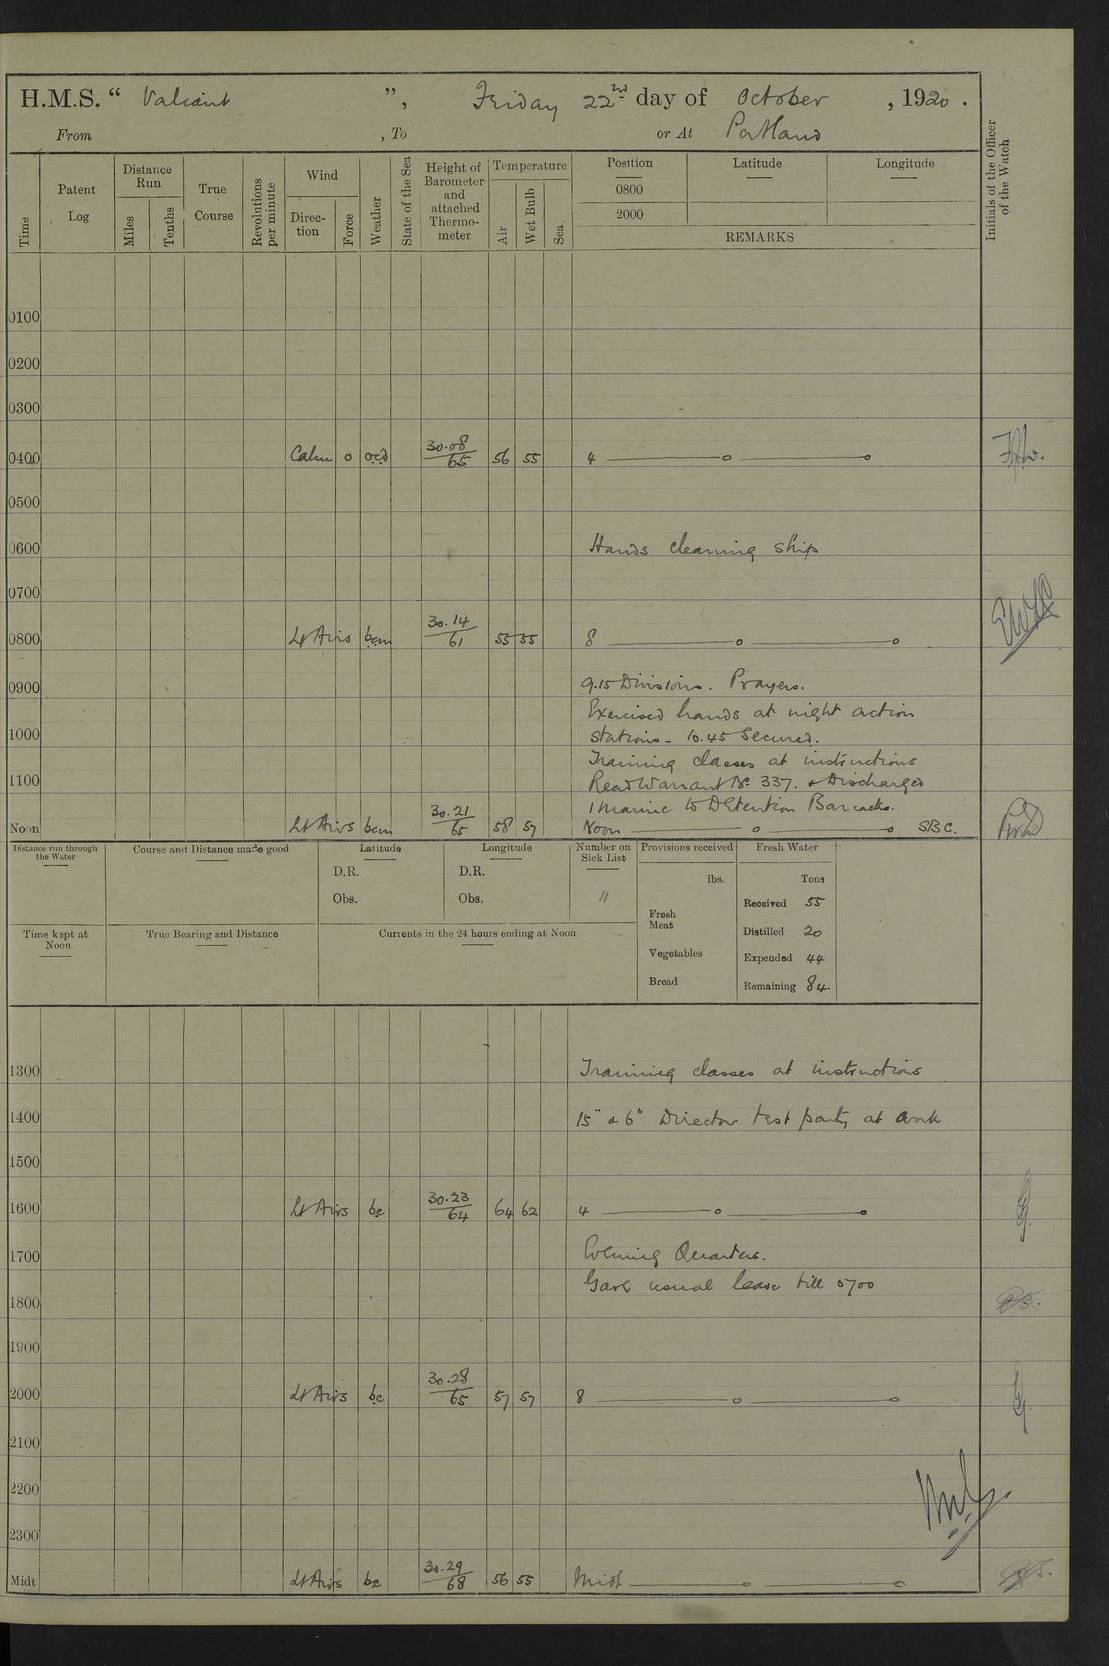 H.M.S. “ Valiant ”, Friday 22nd day of October , 1920 .
From , To or At Portland
Time
Patent Log
Distance Run
Miles
Tenths
True Course
Revolutions per minute
Wind
Direc-tion
Force
Weather
State of the Sea
Height of Barometer and attached Thermo-meter
Temperature
Air
Wet Bulb
Sea
Position
Latitude
Longitude
0800
2000
REMARKS
Initials of the Officer of the Watch
0100
0200
0300
0400 Calm 0 ocd 30.08/65 56 55 4
0500
0600 Hands cleaning ship
0700
0800 Lt Airs bcm 30.14/61 55 55 8
0900 9.15 Divisions. Prayers.
Exercised hands at night action
1000 stations - 10.45 Secured.
Training classes at instructions
1100 Read Warrant No. 337. & Discharged
1 Marine to Detention Barracks.
Noon Lt Airs bcm 30.21/65 58 57 Noon SBC.
Distance run through the Water
Course and Distance made good
Latitude
D.R.
Obs.
Longitude
D.R.
Obs.
Number on Sick List
11
Provisions received
lbs.
Fresh Meat
Vegetables
Bread
Fresh Water
Tons
Received 55
Distilled 20
Expended 44
Remaining 84.
Time kept at Noon
True Bearing and Distance
Currents in the 24 hours ending at Noon
1300 Training classes at instructions
1400 15" & 6" Director test party at work
1500
1600 Lt Airs bc 30.23/64 64 62 4
1700 Evening Quarters.
Gave usual leave till 0700
1800
1900
2000 Lt Airs bc 30.28/65 57 57 8
2100
2200
2300
Midt Lt Airs bc 30.29/68 56 55 Midt